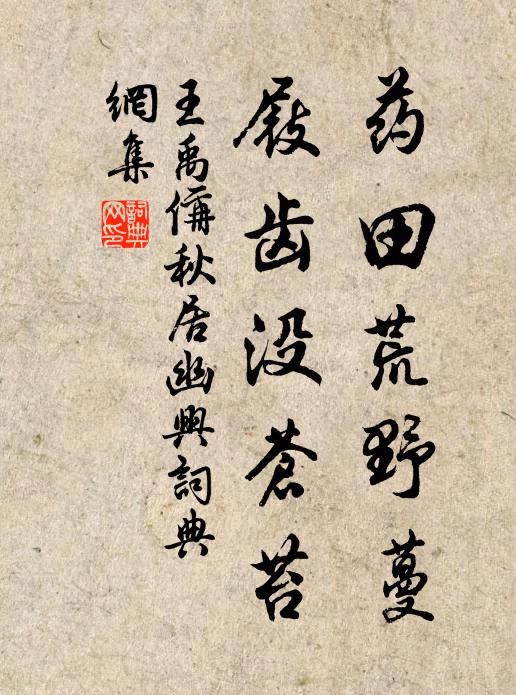 药田荒野蔓
屐齿没苍苔
王禹偁秋居幽興詞典
網集
詞典
网印